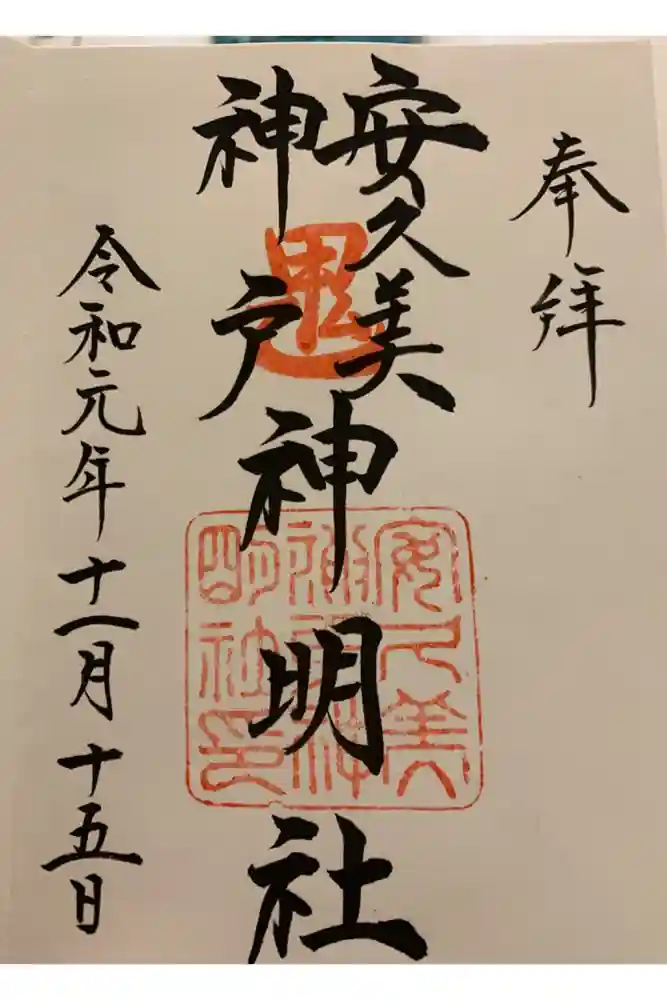 奉拝
安久美
神戸
神明社
安久美神戸神明社印
令和元年十一月十五日